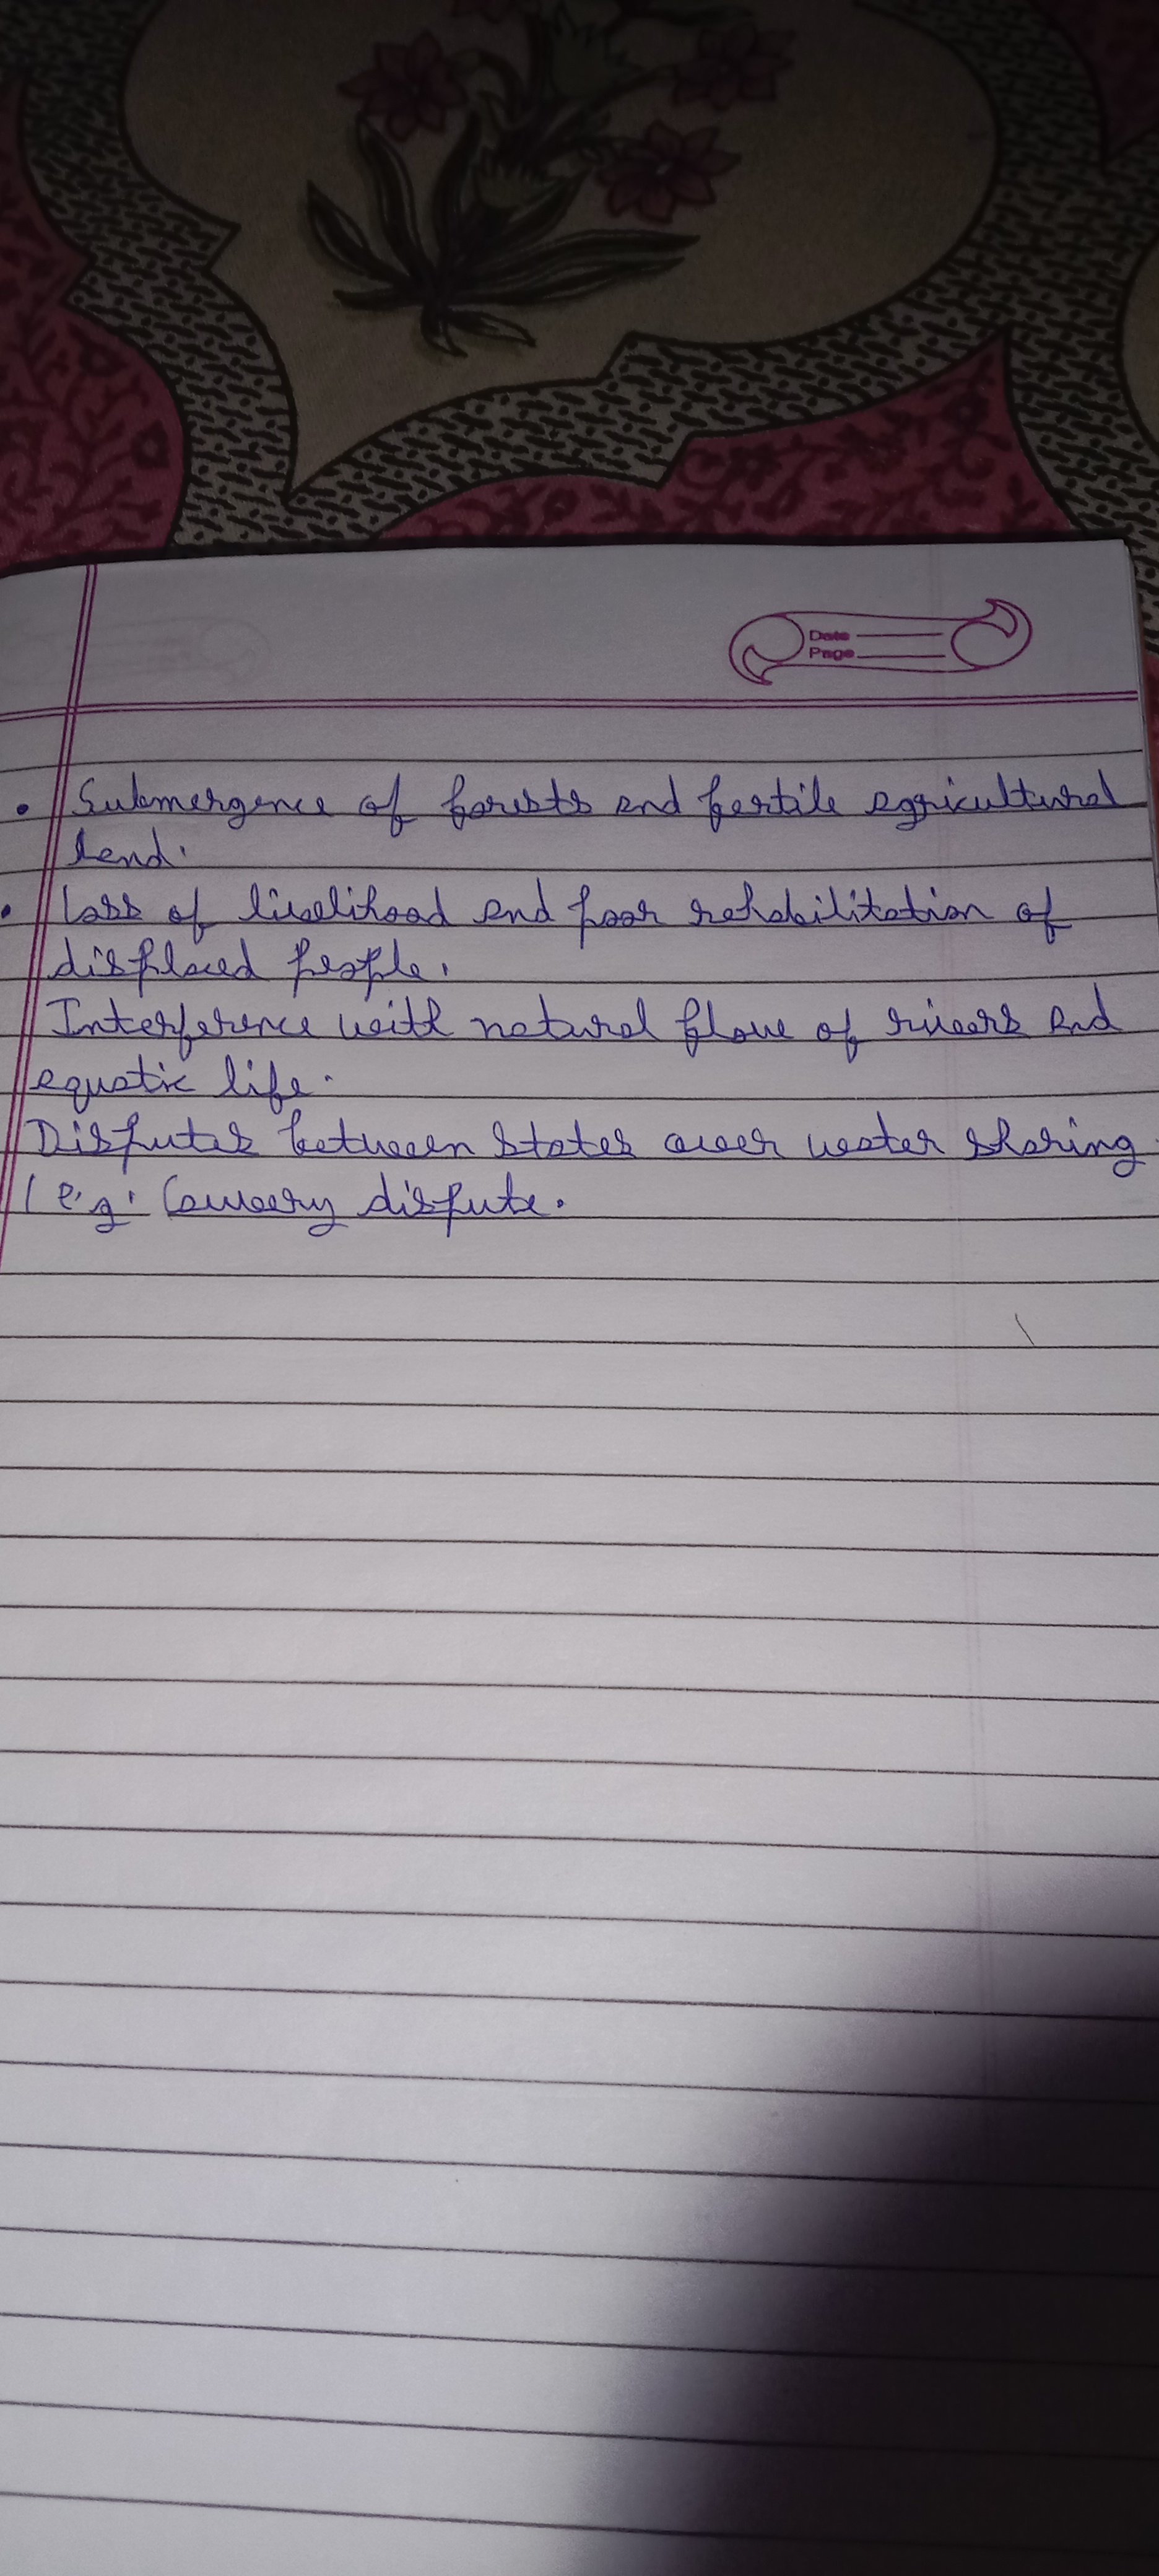 Date
Page
• Submergence of forests and fertile agricultural
land.
• Loss of livelihood and poor rehabilitation of
displaced people.
Interference with natural flow of rivers and
aquatic life.
Disputes between states over water sharing
(e.g. Cauvery dispute.